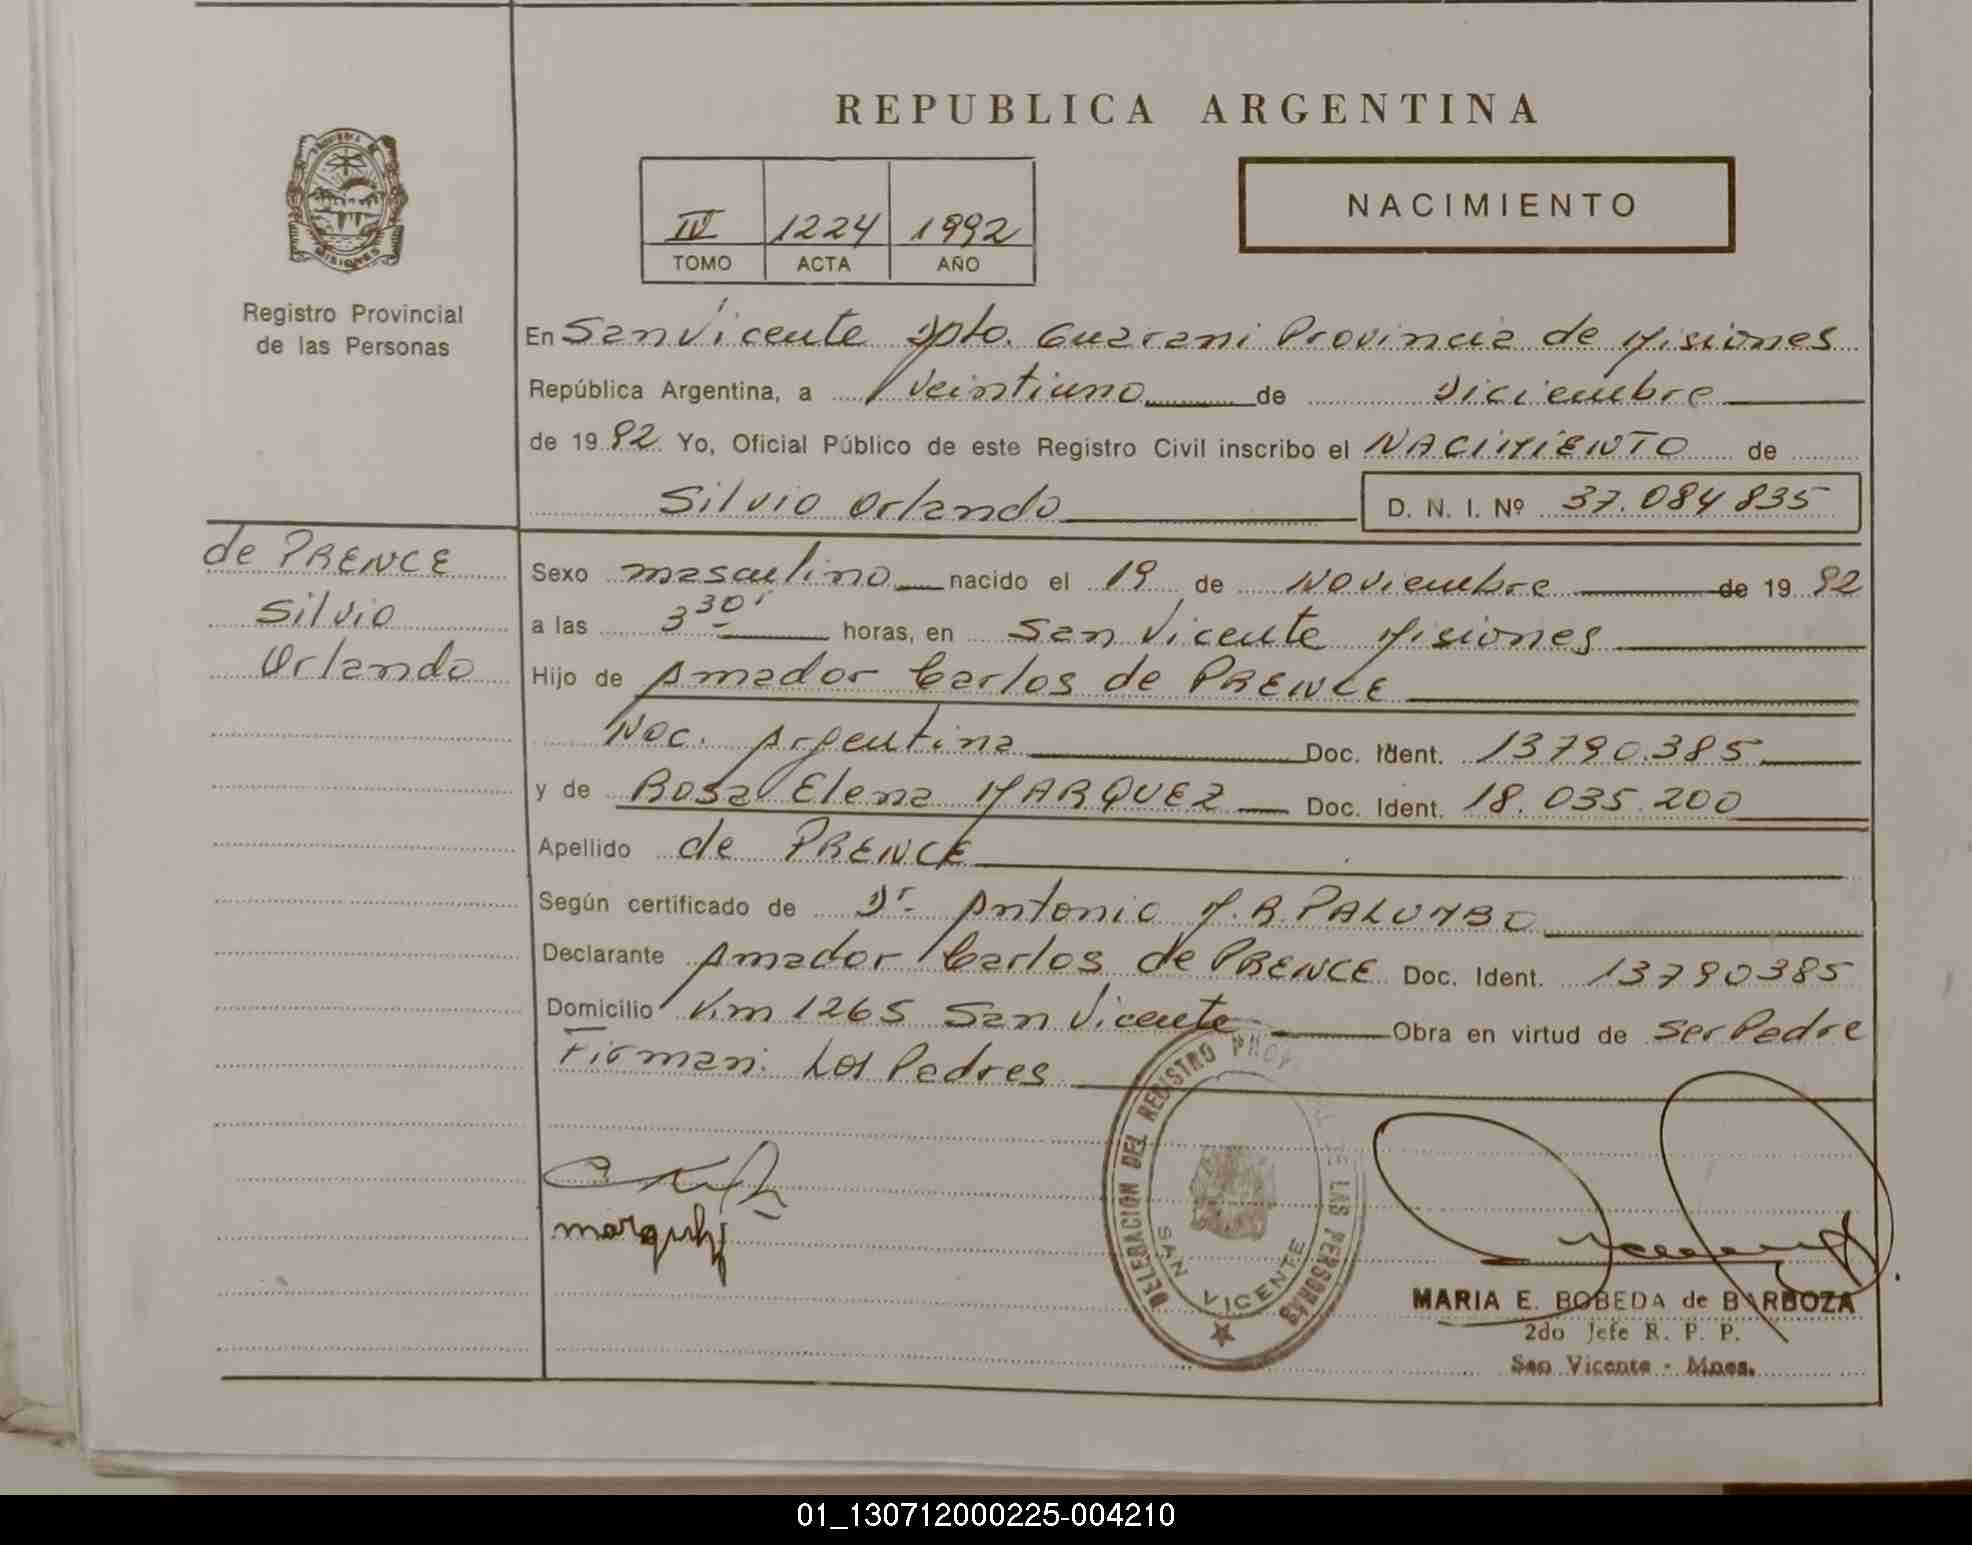 REPUBLICA ARGENTINA
NACIMIENTO
IV 1224 1992
TOMO ACTA AÑO
MISIONES
Registro Provincial
de las Personas
En San Vicente Dpto. Guarani Provincia de Misiones
República Argentina, a Veintiuno de Diciembre
de 1992 Yo, Oficial Público de este Registro Civil inscribo el NACIMIENTO de
Silvio Orlando D. N. I. Nº 37.084.835
de PRENCE
Silvio
Orlando
Sexo masculino nacido el 19 de Noviembre de 1992
a las 3 30' horas, en San Vicente Misiones
Hijo de Amador Carlos de PRENCE
Nac. Argentina Doc. Ident. 13790.385
y de Rosa Elena MARQUEZ Doc. Ident. 18.035.200
Apellido de PRENCE
Según certificado de Dr. Antonio M.R. PALUMBO
Declarante Amador Carlos de PRENCE Doc. Ident. 13790385
Domicilio Km 1265 San Vicente Obra en virtud de ser Padre
Firman: Los Padres
DELEGACIÓN DEL REGISTRO PROV DE LAS PERSONAS
SAN VICENTE
MARIA E. BOBEDA de BARBOZA
2do Jefe R. P. P.
San Vicente - Mnes.
01_130712000225-004210